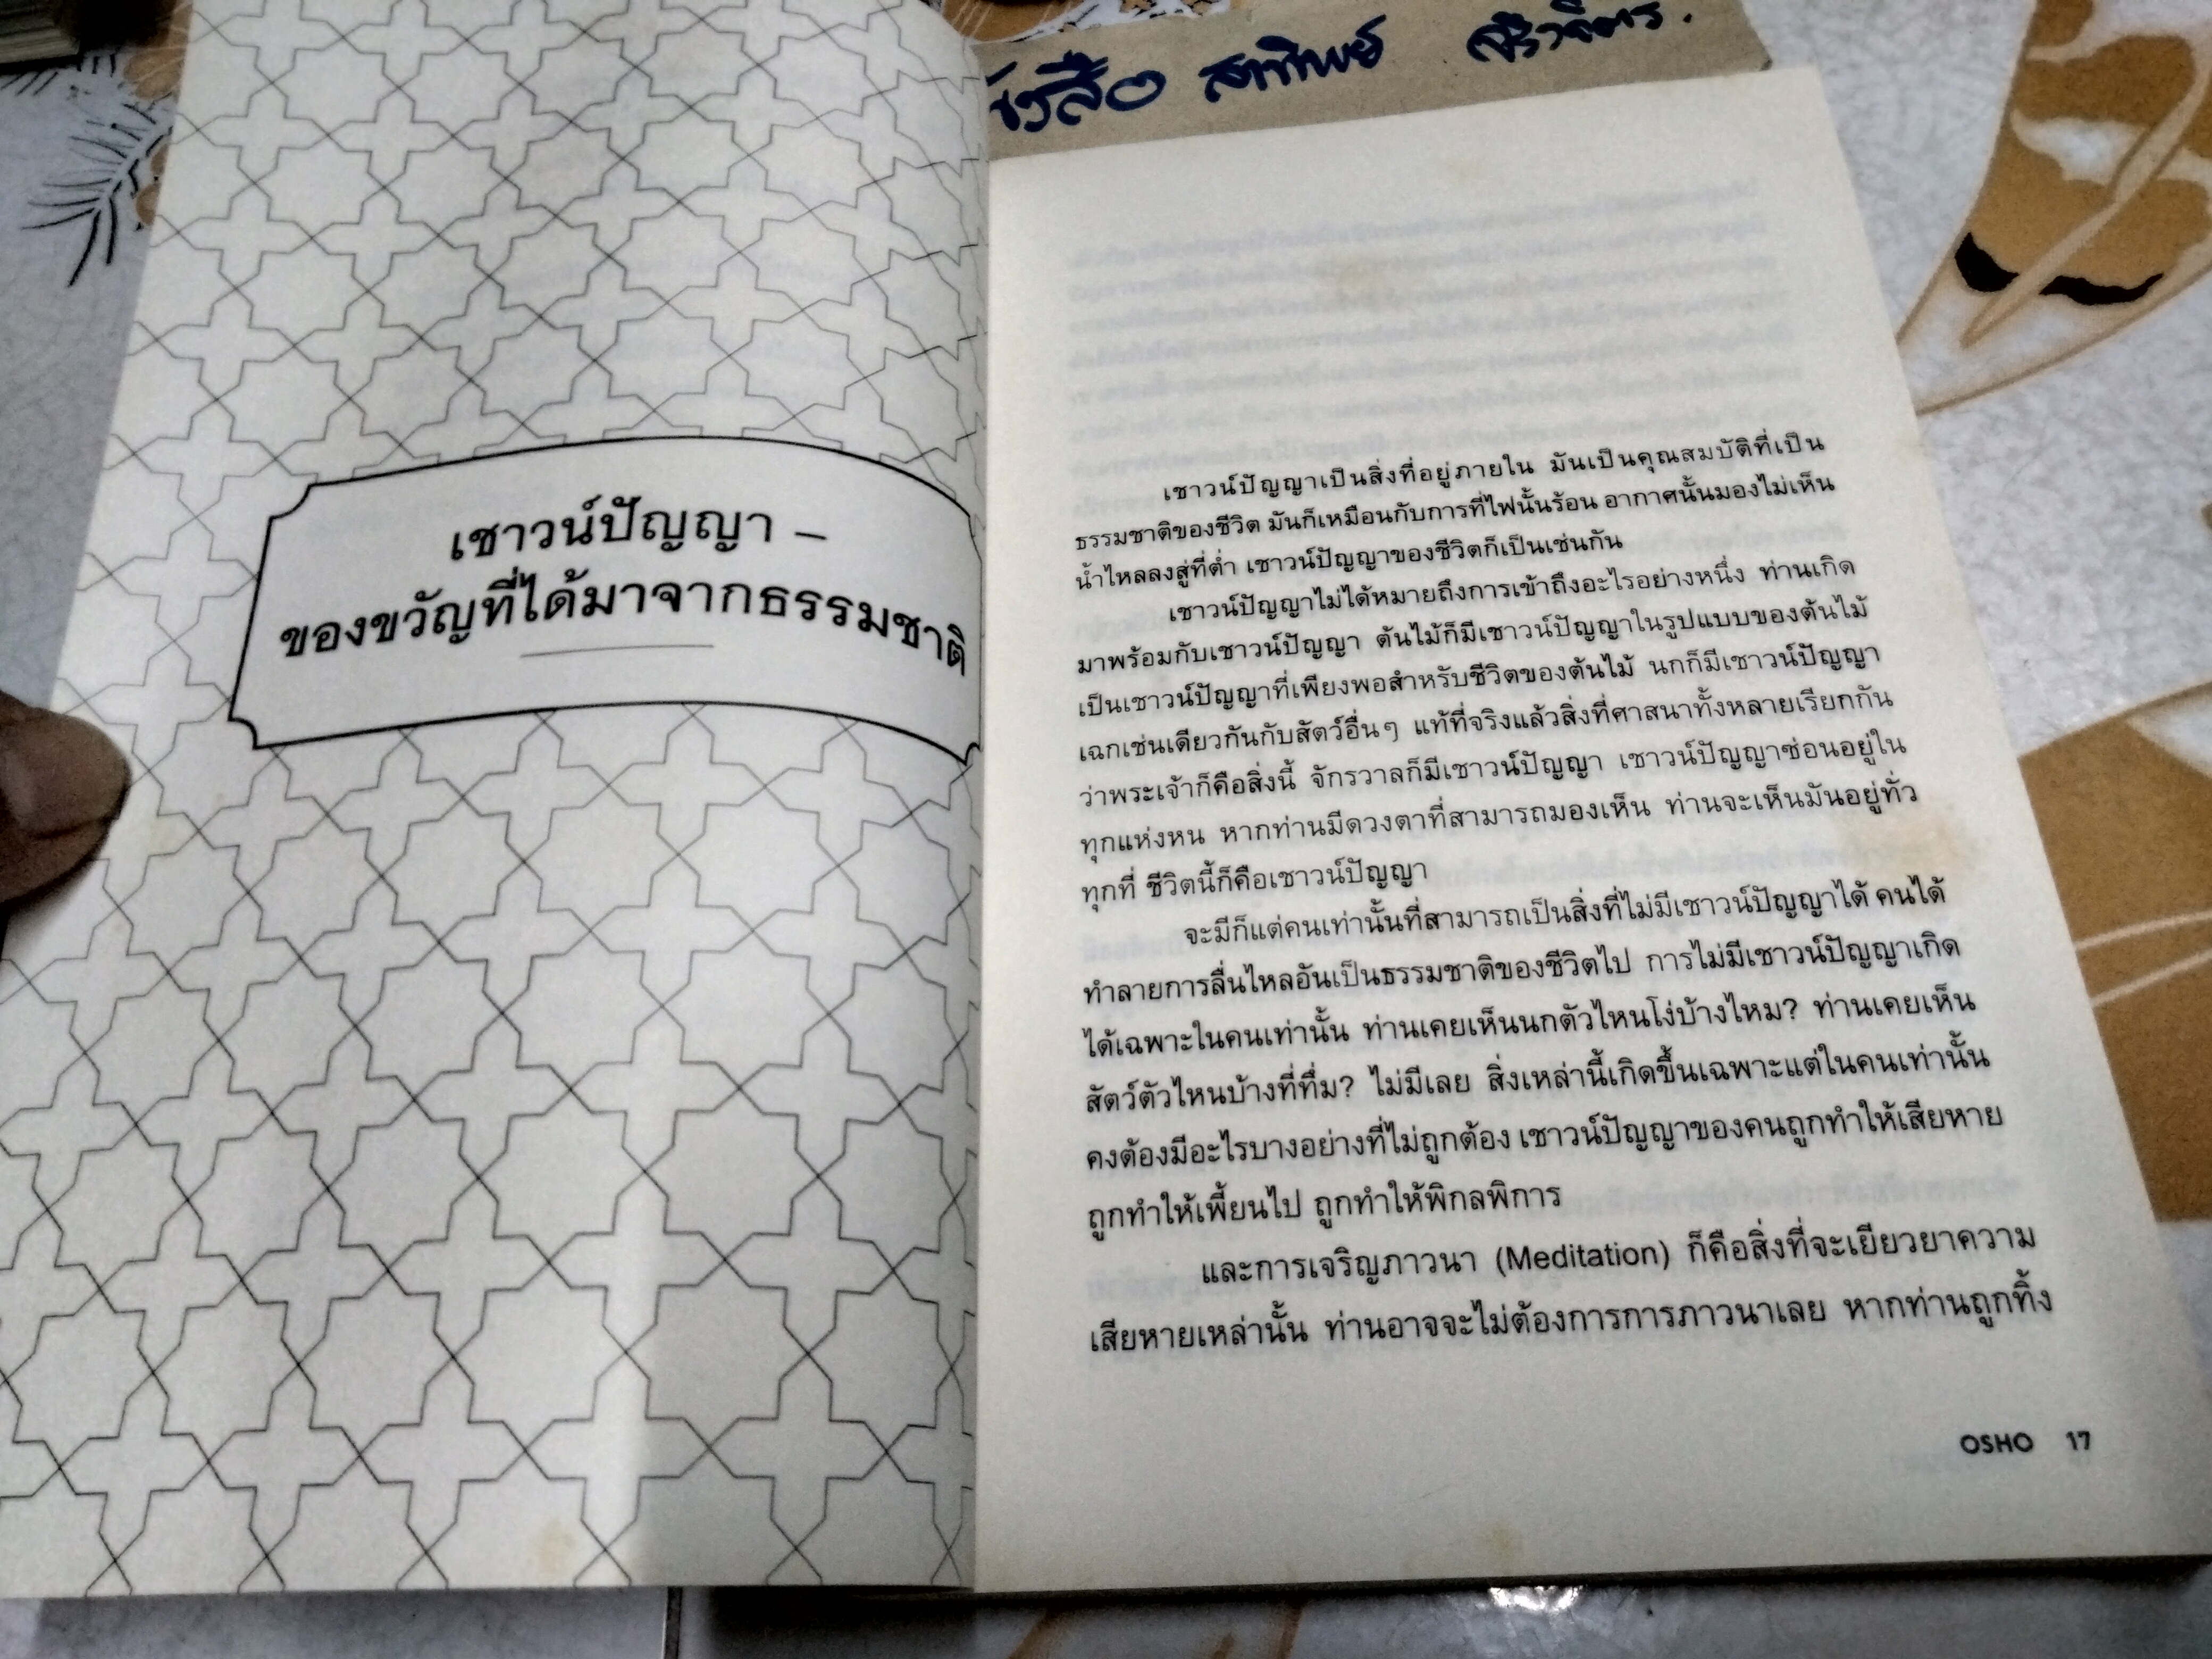 สาทิพย์
เชาวน์ปัญญา –
ของขวัญที่ได้มาจากธรรมชาติ
เชาวน์ปัญญาเป็นสิ่งที่อยู่ภายใน มันเป็นคุณสมบัติที่เป็น
ธรรมชาติของชีวิต มันก็เหมือนกับการที่ไฟนั้นร้อน อากาศนั้นมองไม่เห็น
น้ำไหลลงสู่ที่ต่ำ เชาวน์ปัญญาของชีวิตก็เป็นเช่นกัน
เชาวน์ปัญญาไม่ได้หมายถึงการเข้าถึงอะไรอย่างหนึ่ง ท่านเกิด
มาพร้อมกับเชาวน์ปัญญา ต้นไม้ก็มีเชาวน์ปัญญาในรูปแบบของต้นไม้
เป็นเชาวน์ปัญญาที่เพียงพอสำหรับชีวิตของต้นไม้ นกก็มีเชาวน์ปัญญา
เฉกเช่นเดียวกันกับสัตว์อื่นๆ แท้ที่จริงแล้วสิ่งที่ศาสนาทั้งหลายเรียกกัน
ว่าพระเจ้าก็คือสิ่งนี้ จักรวาลก็มีเชาวน์ปัญญา เชาวน์ปัญญาซ่อนอยู่ใน
ทุกแห่งหน หากท่านมีดวงตาที่สามารถมองเห็น ท่านจะเห็นมันอยู่ทั่ว
ทุกที่ ชีวิตนี้ก็คือเชาวน์ปัญญา
จะมีก็แต่คนเท่านั้นที่สามารถเป็นสิ่งที่ไม่มีเชาวน์ปัญญาได้ คนได้
ทำลายการลื่นไหลอันเป็นธรรมชาติของชีวิตไป การไม่มีเชาวน์ปัญญาเกิด
ได้เฉพาะในคนเท่านั้น ท่านเคยเห็นนกตัวไหนโง่บ้างไหม? ท่านเคยเห็น
สัตว์ตัวไหนบ้างที่ทึ่ม? ไม่มีเลย สิ่งเหล่านี้เกิดขึ้นเฉพาะแต่ในคนเท่านั้น
คงต้องมีอะไรบางอย่างที่ไม่ถูกต้อง เชาวน์ปัญญาของคนถูกทำให้เสียหาย
ถูกทำให้เพี้ยนไป ถูกทำให้พิกลพิการ
และการเจริญภาวนา (Meditation) ก็คือสิ่งที่จะเยียวยาความ
เสียหายเหล่านั้น ท่านอาจจะไม่ต้องการการภาวนาเลย หากท่านถูกทิ้ง
OSHO 17